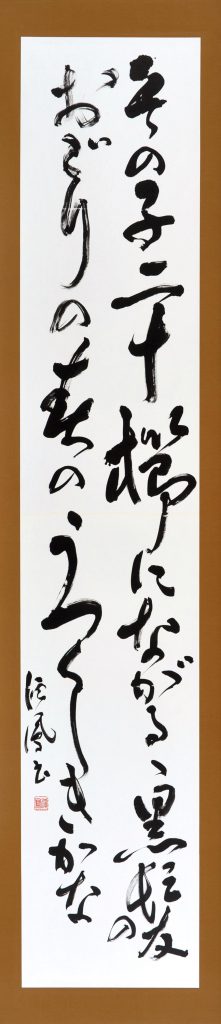 その子二十櫛にながるゝ黒髪の
おごりの春のうつくしきかな